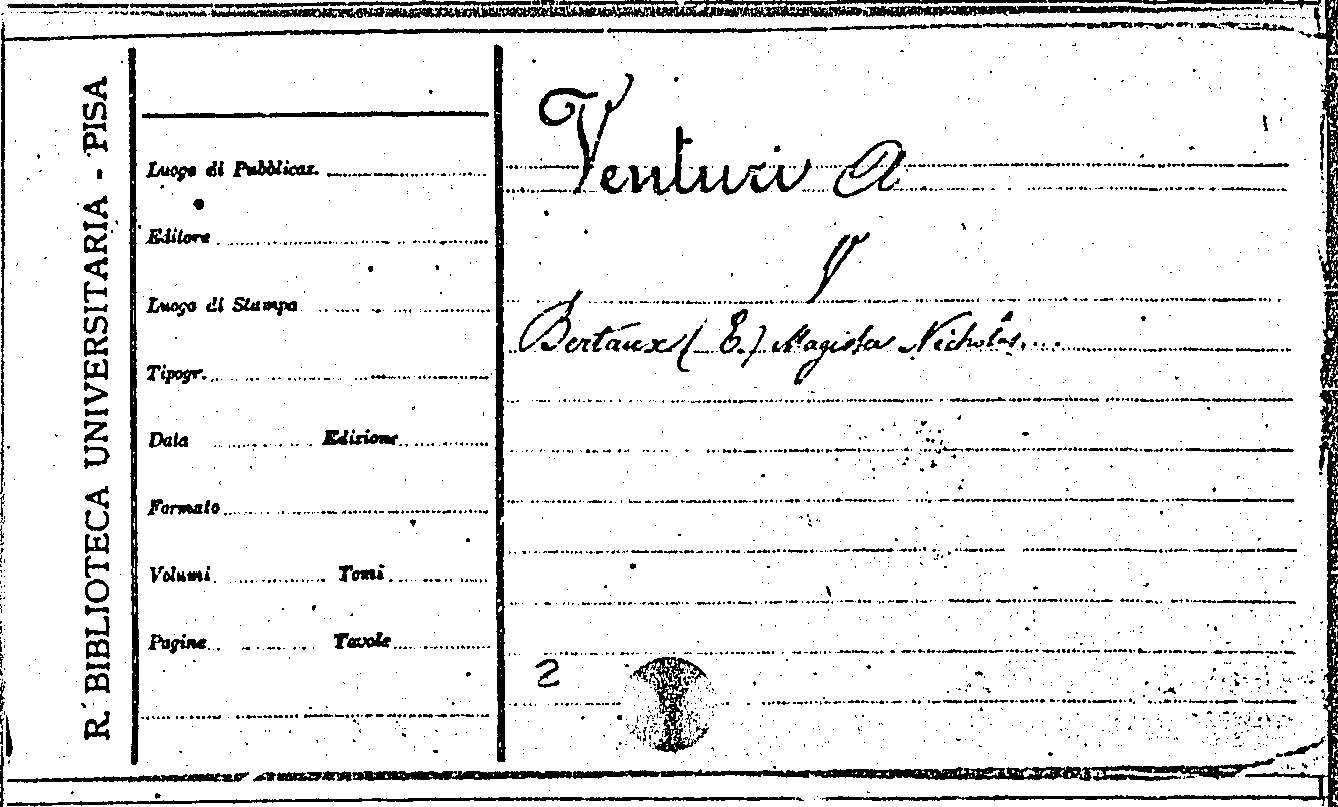 R. BIBLIOTECA UNIVERSITARIA - PISA
Luogo di Pubblicaz.
Editore
Luogo di Stampa
Tipogr.
Data Edizione
Formato
Volumi Tomi
Pagine Tavole
Venturi A
V
Bertaux (E.) Magister Nicholas...
2